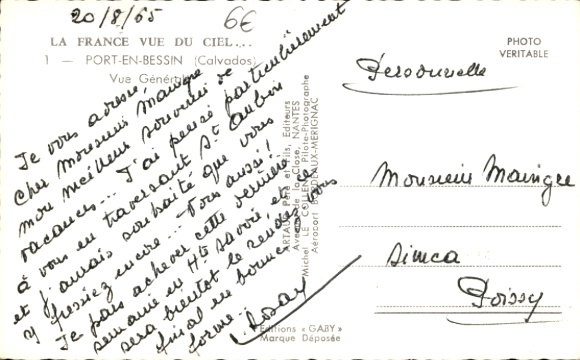 20/8/65
6€
LA FRANCE VUE DU CIEL...
1 — PORT-EN-BESSIN (Calvados)
Vue Générale
PHOTO
VERITABLE
Je vous adresse,
cher Monsieur Maingre
mon meilleur souvenir de
vacances... J'ai pensé particulièrement
à vous en traversant St Aubin
et j'aurais souhaité que vous
y fussiez encore... Vous aussi!
Je pars achever cette dernière
semaine en Hte Savoie, et
sera bientôt le rendez vous
final en bonne
forme.
ARTAUD Père et Fils, Editeurs
Avenue de la Close, NANTES
Michel LE COLLEN, Pilote-Photographe
Aéroport BORDEAUX-MERIGNAC
Editions « GABY »
Marque Déposée
Personnelle
Monsieur Maingre
Simca
Poissy